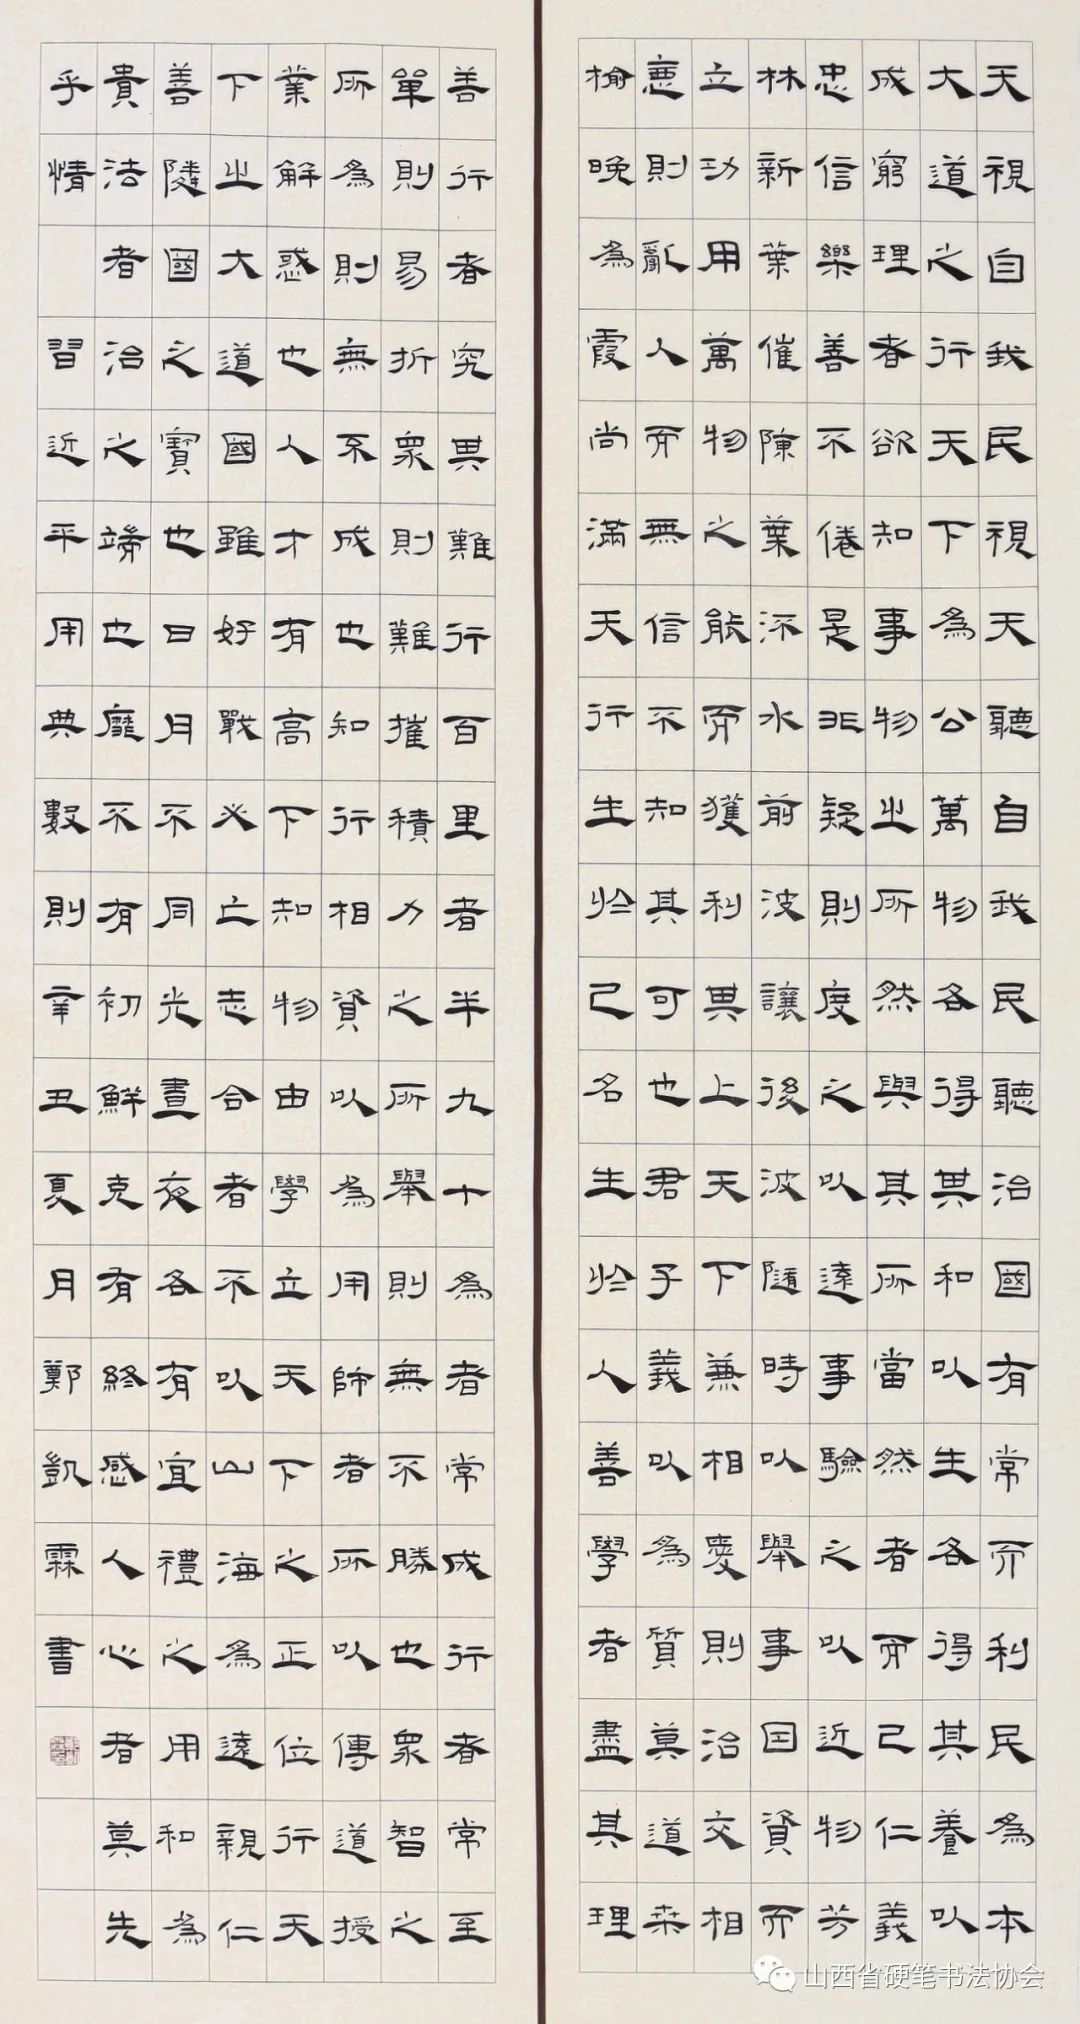 天視自我民視天聽自我民聽治國有常而利民為本
大道之行天下為公萬物各得其和以生各得其養以
成窮理者欲知事物之所然與其所當然者而已仁義
忠信樂善不倦是非疑則度之以遠事驗之以近物芳
林新葉催陳葉流水前波讓後波隨時以舉事因資而
立功用萬物之能而獲利其上天下兼相愛則治交相
惡則亂人而無信不知其可也君子義以為質莫道桑
榆晚為霞尚滿天行生於己名生於人善學者盡其理
善行者究其難行百里者半九十為者常成行者常至
單則易折眾則難摧積力之所舉則無不勝也眾智之
所為則無不成也知行相資以為用師者所以傳道授
業解惑也人才有高下知物由學立天下之正位行天
下之大道國雖好戰必亡志合者不以山海為遠親仁
善隣國之寶也日月不同光晝夜各有宜禮之用和為
貴法者治之端也靡不有初鮮克有終感人心者莫先
乎情 習近平用典數則辛丑夏月鄭凱霖書
山西省硬笔书法协会